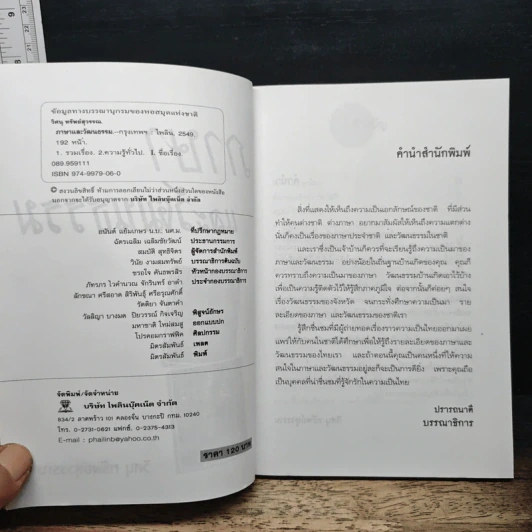 ข้อมูลทางบรรณานุกรมของหอสมุดแห่งชาติ
วิศนุ ทรัพย์สุวรรณ.
ภาษาและวัฒนธรรม.--กรุงเทพฯ : ไพลิน, 2549.
192 หน้า.
1. รวมเรื่อง. 2.ความรู้ทั่วไป. I. ชื่อเรื่อง.
089.959111
ISBN 974-9979-06-0
© สงวนลิขสิทธิ์ ห้ามการลอกเลียนไม่ว่าส่วนหนึ่งส่วนใดของหนังสือ
นอกจากจะได้รับอนุญาตจาก บริษัท ไพลินบุ๊คเน็ต จำกัด
อนันต์ แย้มเกษร น.บ. นศ.ม. ที่ปรึกษากฎหมาย
ฉัตรเฉลิม เฉลิมชัยวัฒน์ ประธานกรรมการ
สมบัติ สุทธิจิตร ผู้จัดการสำนักพิมพ์
วินัย งามสมทรัพย์ บรรณาธิการต้นฉบับ
ชรอใจ ตันธพรสิร หัวหน้ากองบรรณาธิการ
ภัทรภร ไวคำนวณ จักรินทร์ อาดำ ประจำกองบรรณาธิการ
ลักขณา ศรีอลาด สิริพันธุ์ ศรีอรุณศักดิ์
รัตติยา จันดาคำ
วัลลิญา บางมด ปิยวรรณ์ กิจเจริญ พิสูจน์อักษร
มหาชาติ ใหม่สมสู ออกแบบปก
โปรคอมกราฟฟิค ศิลปกรรม
มิตรสัมพันธ์ เพลต
มิตรสัมพันธ์ พิมพ์
จัดพิมพ์/จัดจำหน่าย
บริษัท ไพลินบุ๊คเน็ต จำกัด
634/2 ลาดพร้าว 101 คลองจั่น บางกะปิ กทม. 10240
โทร. 0-2731-0621 แฟกซ์. 0-2375-4313
E-mail : phailinb@yahoo.co.th
ราคา 120 บาท
คำนำสำนักพิมพ์
สิ่งที่แสดงให้เห็นถึงความเป็นเอกลักษณ์ของชาติ ที่มีส่วน
ทำให้คนต่างชาติ ต่างภาษา อยากมาสัมผัสให้เห็นถึงความแตกต่าง
นั่นก็คงเป็นเรื่องของภาษาประจำชาติ และวัฒนธรรมในชาติ
และเราซึ่งเป็นเจ้าบ้านก็ควรที่จะเรียนรู้ถึงความเป็นมาของ
ภาษาและวัฒนธรรม อย่างน้อยในพื้นฐานบ้านเกิดของคุณ คุณก็
ควรทราบถึงความเป็นมาของภาษา วัฒนธรรมบ้านเกิดเอาไว้บ้าง
เพื่อเป็นความรู้ติดตัวไว้ให้รู้สึกภาคภูมิใจ ต่อจากนั้นก็ค่อยๆ สนใจ
เรื่องวัฒนธรรมของจังหวัด จนกระทั่งศึกษาความเป็นมา ราย
ละเอียดของภาษา และวัฒนธรรมของชาติเรา
รู้สึกชื่นชมที่มีผู้ถ่ายทอดเรื่องราวความเป็นไทยออกมาเผย
แพร่ให้กับคนในชาติได้ศึกษาเพื่อให้รู้ถึงรายละเอียดของภาษาและ
วัฒนธรรมของไทยเรา และถ้าตอนนี้คุณเป็นคนหนึ่งที่ให้ความ
สนใจในภาษาและวัฒนธรรมอยู่ละก็จะเป็นการดียิ่ง เพราะคุณถือ
เป็นบุคคลที่น่าชื่นชมที่รู้จักรักในความเป็นไทย
ปรารถนาดี
บรรณาธิการ